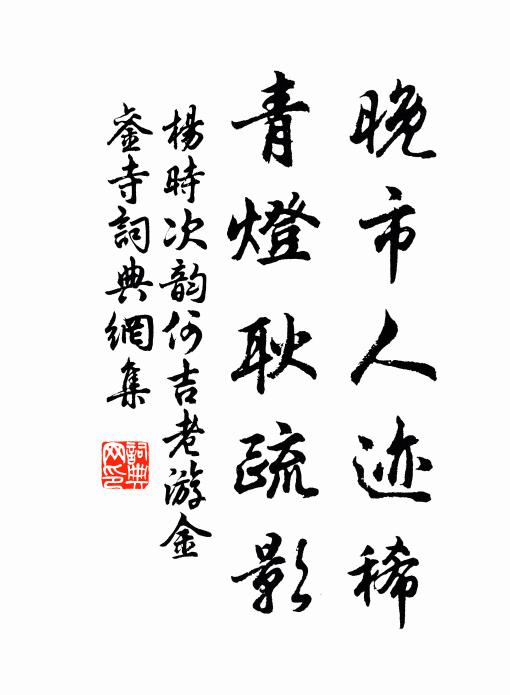 晚市人迹稀
青燈耿疏影
楊時次韵何吉老游金
銮寺詞典網集
詞典網印